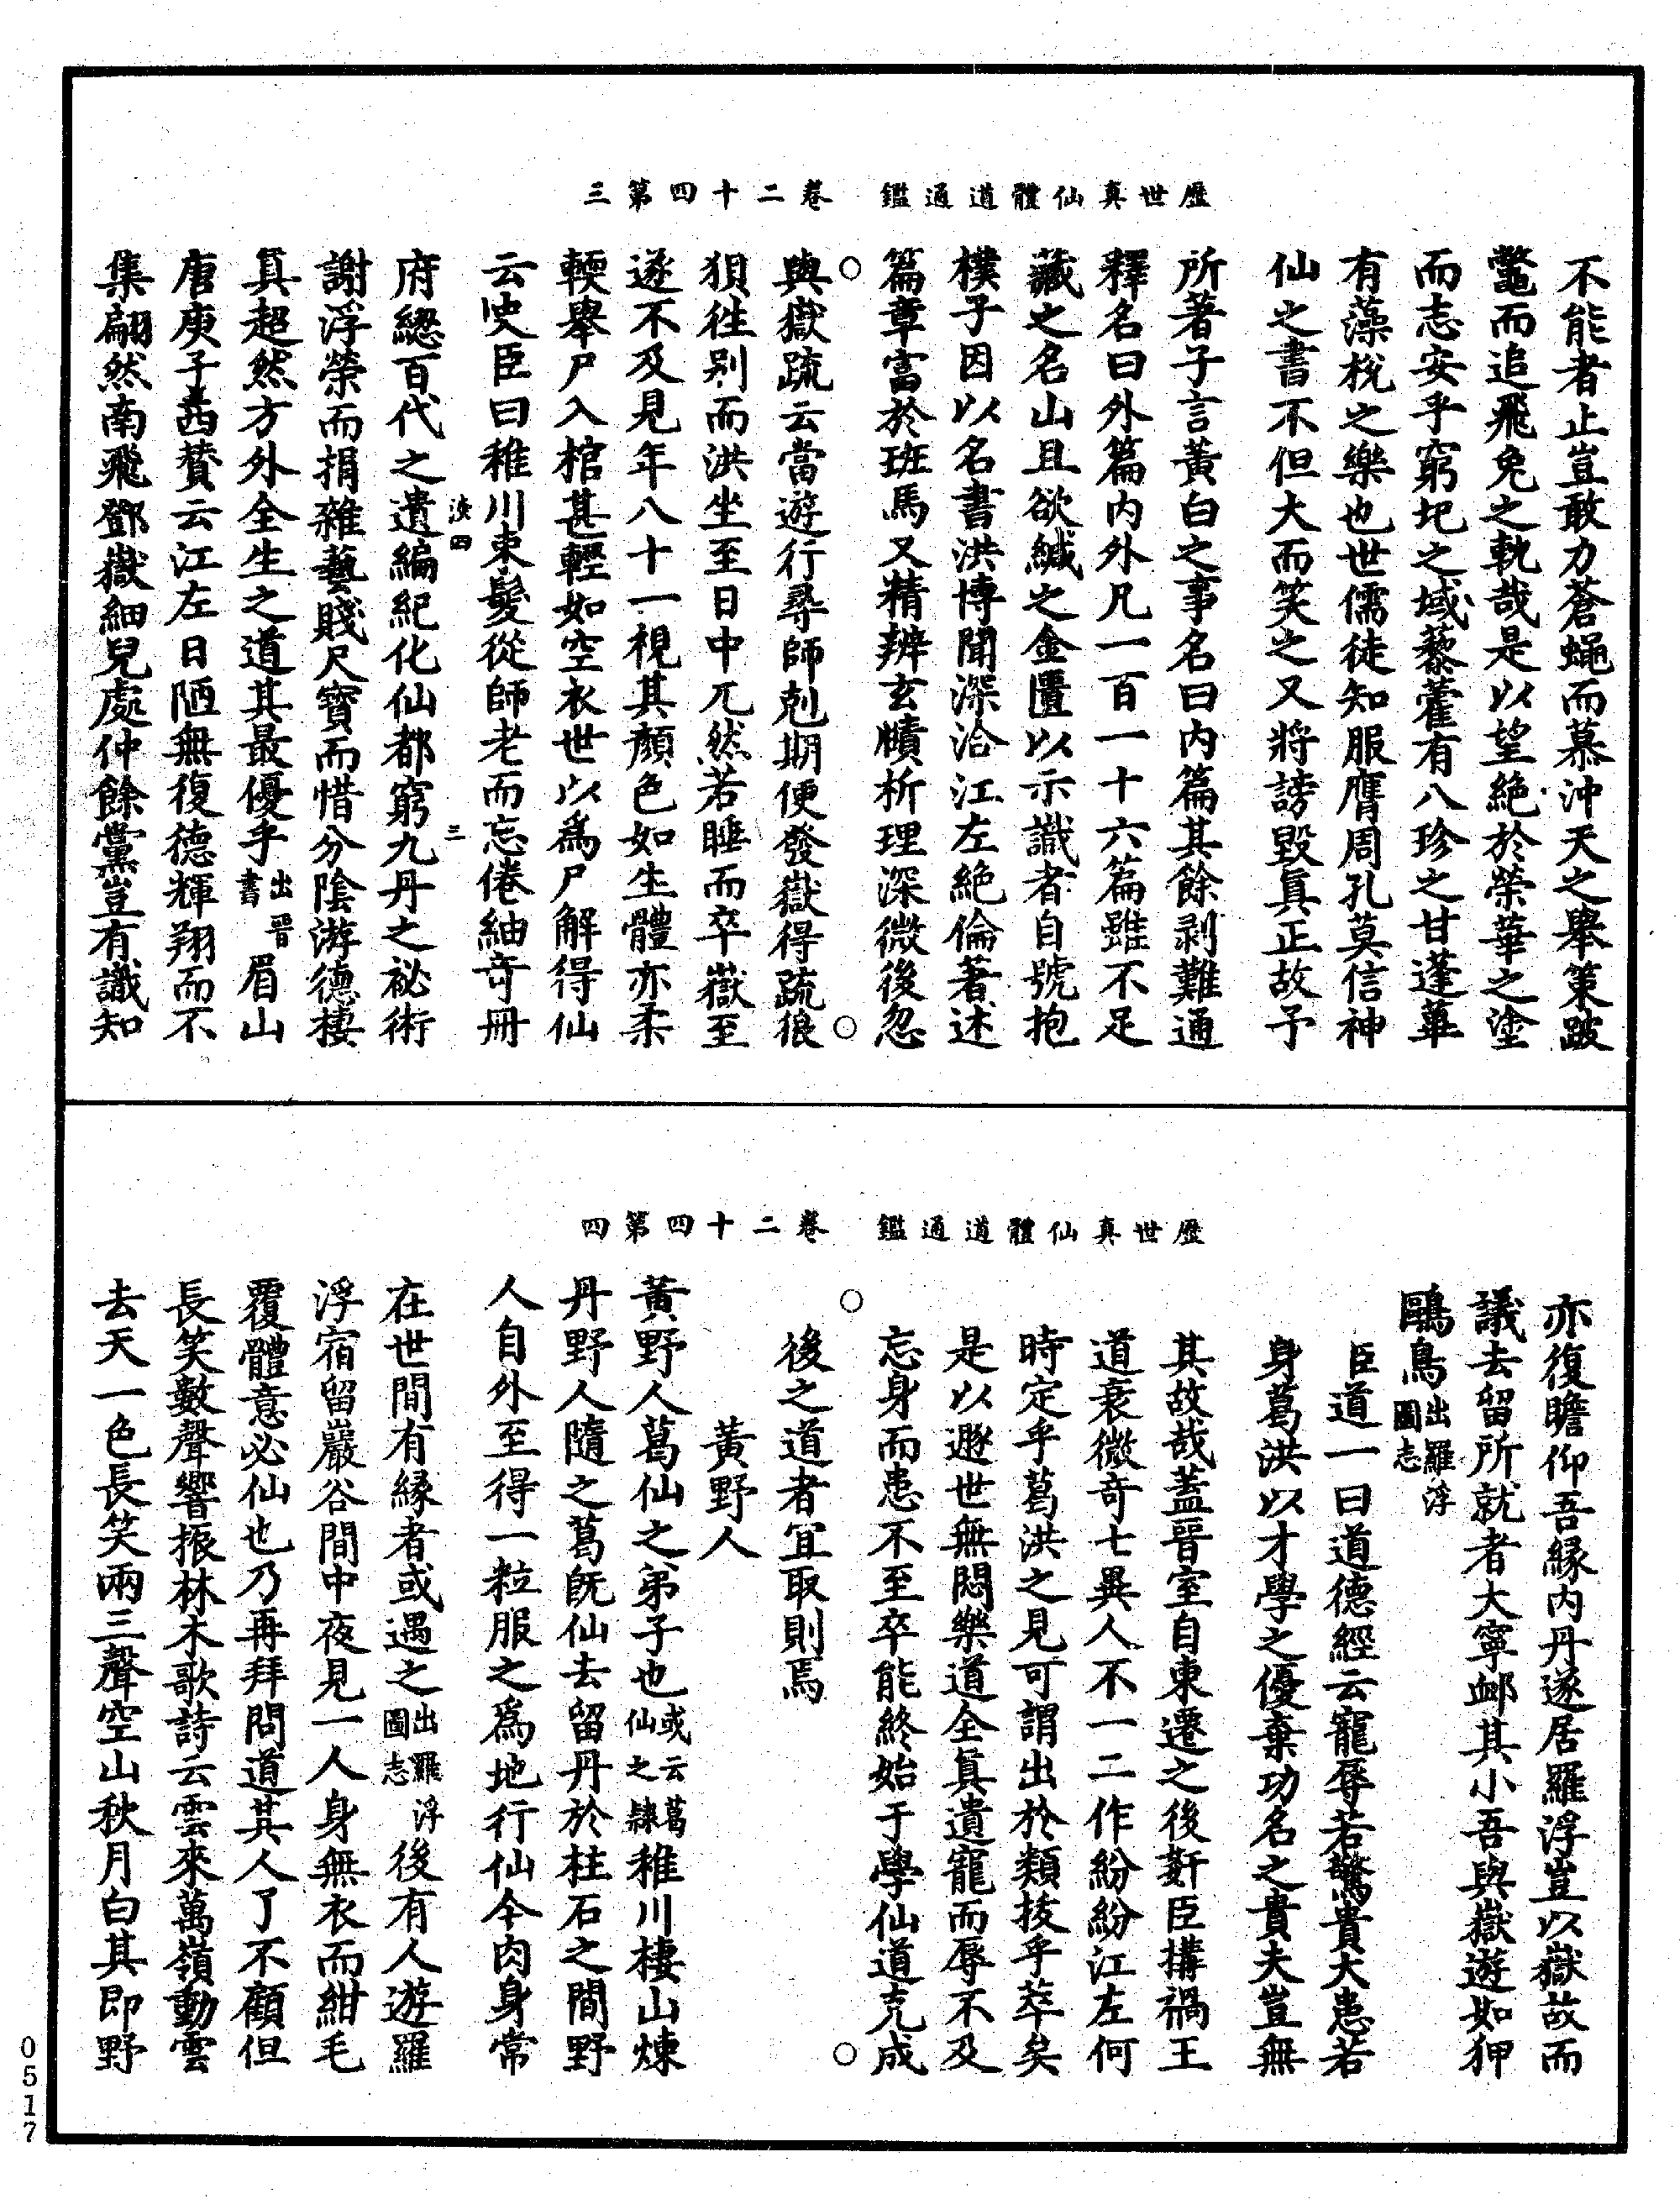 歷世真仙體道通鑑　卷二十四第三
不能者止豈敢力蒼蠅而慕沖天之舉策跛
鼈而追飛兔之軌哉是以望絕於榮華之塗
而志安乎窮圯之域藜藿有八珍之甘蓬蓽
有藻梲之樂也世儒徒知服膺周孔莫信神
仙之書不但大而笑之又將謗毀真正故予
所著子言黃白之事名曰內篇其餘剥難通
釋名曰外篇內外凡一百一十六篇雖不足
藏之名山且欲緘之金匱以示識者自號抱
樸子因以名書洪博聞深洽江左絕倫著述
篇章富於班馬又精辨玄賾析理深微後忽
與嶽疏云當遊行尋師剋期便發嶽得疏狼
狽徃別而洪坐至日中兀然若睡而卒嶽至
遂不及見年八十一視其顏色如生體亦柔
輭舉尸入棺甚輕如空衣世以為尸解得仙
云史臣曰稚川束髮從師老而忘倦紬奇冊
淡四　三
府緫百代之遺編紀化仙都窮九丹之祕術
謝浮榮而捐雜藝賤尺寶而惜分陰游德棲
真超然方外全生之道其最優乎出晉書　眉山
唐庚子西賛云江左日陋無復德輝翔而不
集翩然南飛鄧嶽細兒處仲餘黨豈有識知
歷世真仙體道通鑑　卷二十四第四
亦復瞻仰吾緣內丹遂居羅浮豈以嶽故而
議去留所就者大寧卹其小吾與嶽遊如狎
鷗鳥出羅浮圖志
臣道一曰道德經云寵辱若驚貴大患若
身葛洪以才學之優棄功名之貴夫豈無
其故哉蓋晉室自東遷之後姧臣搆禍王
道衰微奇士異人不一二作紛紛江左何
時定乎葛洪之見可謂出於類拔乎萃矣
是以遯世無悶樂道全真遺寵而辱不及
忘身而患不至卒能終始于學仙道克成
後之道者宜取則焉
黃野人
黃野人葛仙之弟子也或云葛仙之隸稚川棲山煉
丹野人隨之葛旣仙去留丹於柱石之間野
人自外至得一粒服之為地行仙今肉身常
在世間有緣者或遇之出羅浮圖志後有人遊羅
浮宿留巖谷間中夜見一人身無衣而紺毛
覆體意必仙也乃再拜問道其人了不顧但
長笑數聲響振林木歌詩云雲來萬嶺動雲
去天一色長笑兩三聲空山秋月白其即野
0517